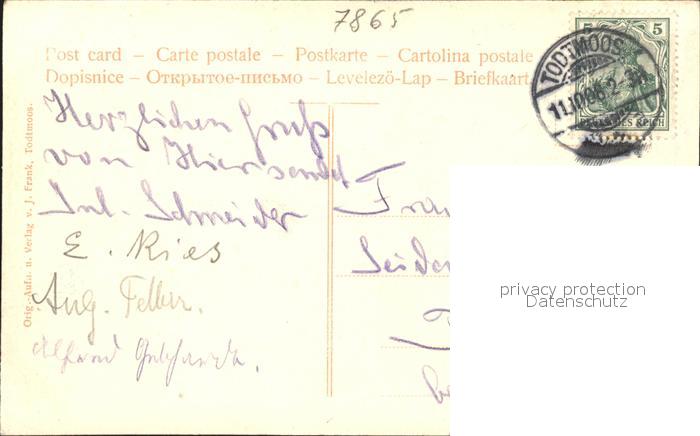 7865
Post card – Carte postale – Postkarte – Cartolina postale
Dopisnice – Открытое-письмо – Levelezö-Lap – Briefkaart
5 5
TODTMOOS
11.10.06.2-3N
DEUTSCHES REICH
Herzlichen Gruß
von Hier sendet
Jul. Schneider
E. Ries
Aug. Felber.
Alfred
Frau
Seiden
Orig.-Aufn. u. Verlag v. J. Frank, Todtmoos.
privacy protection
Datenschutz